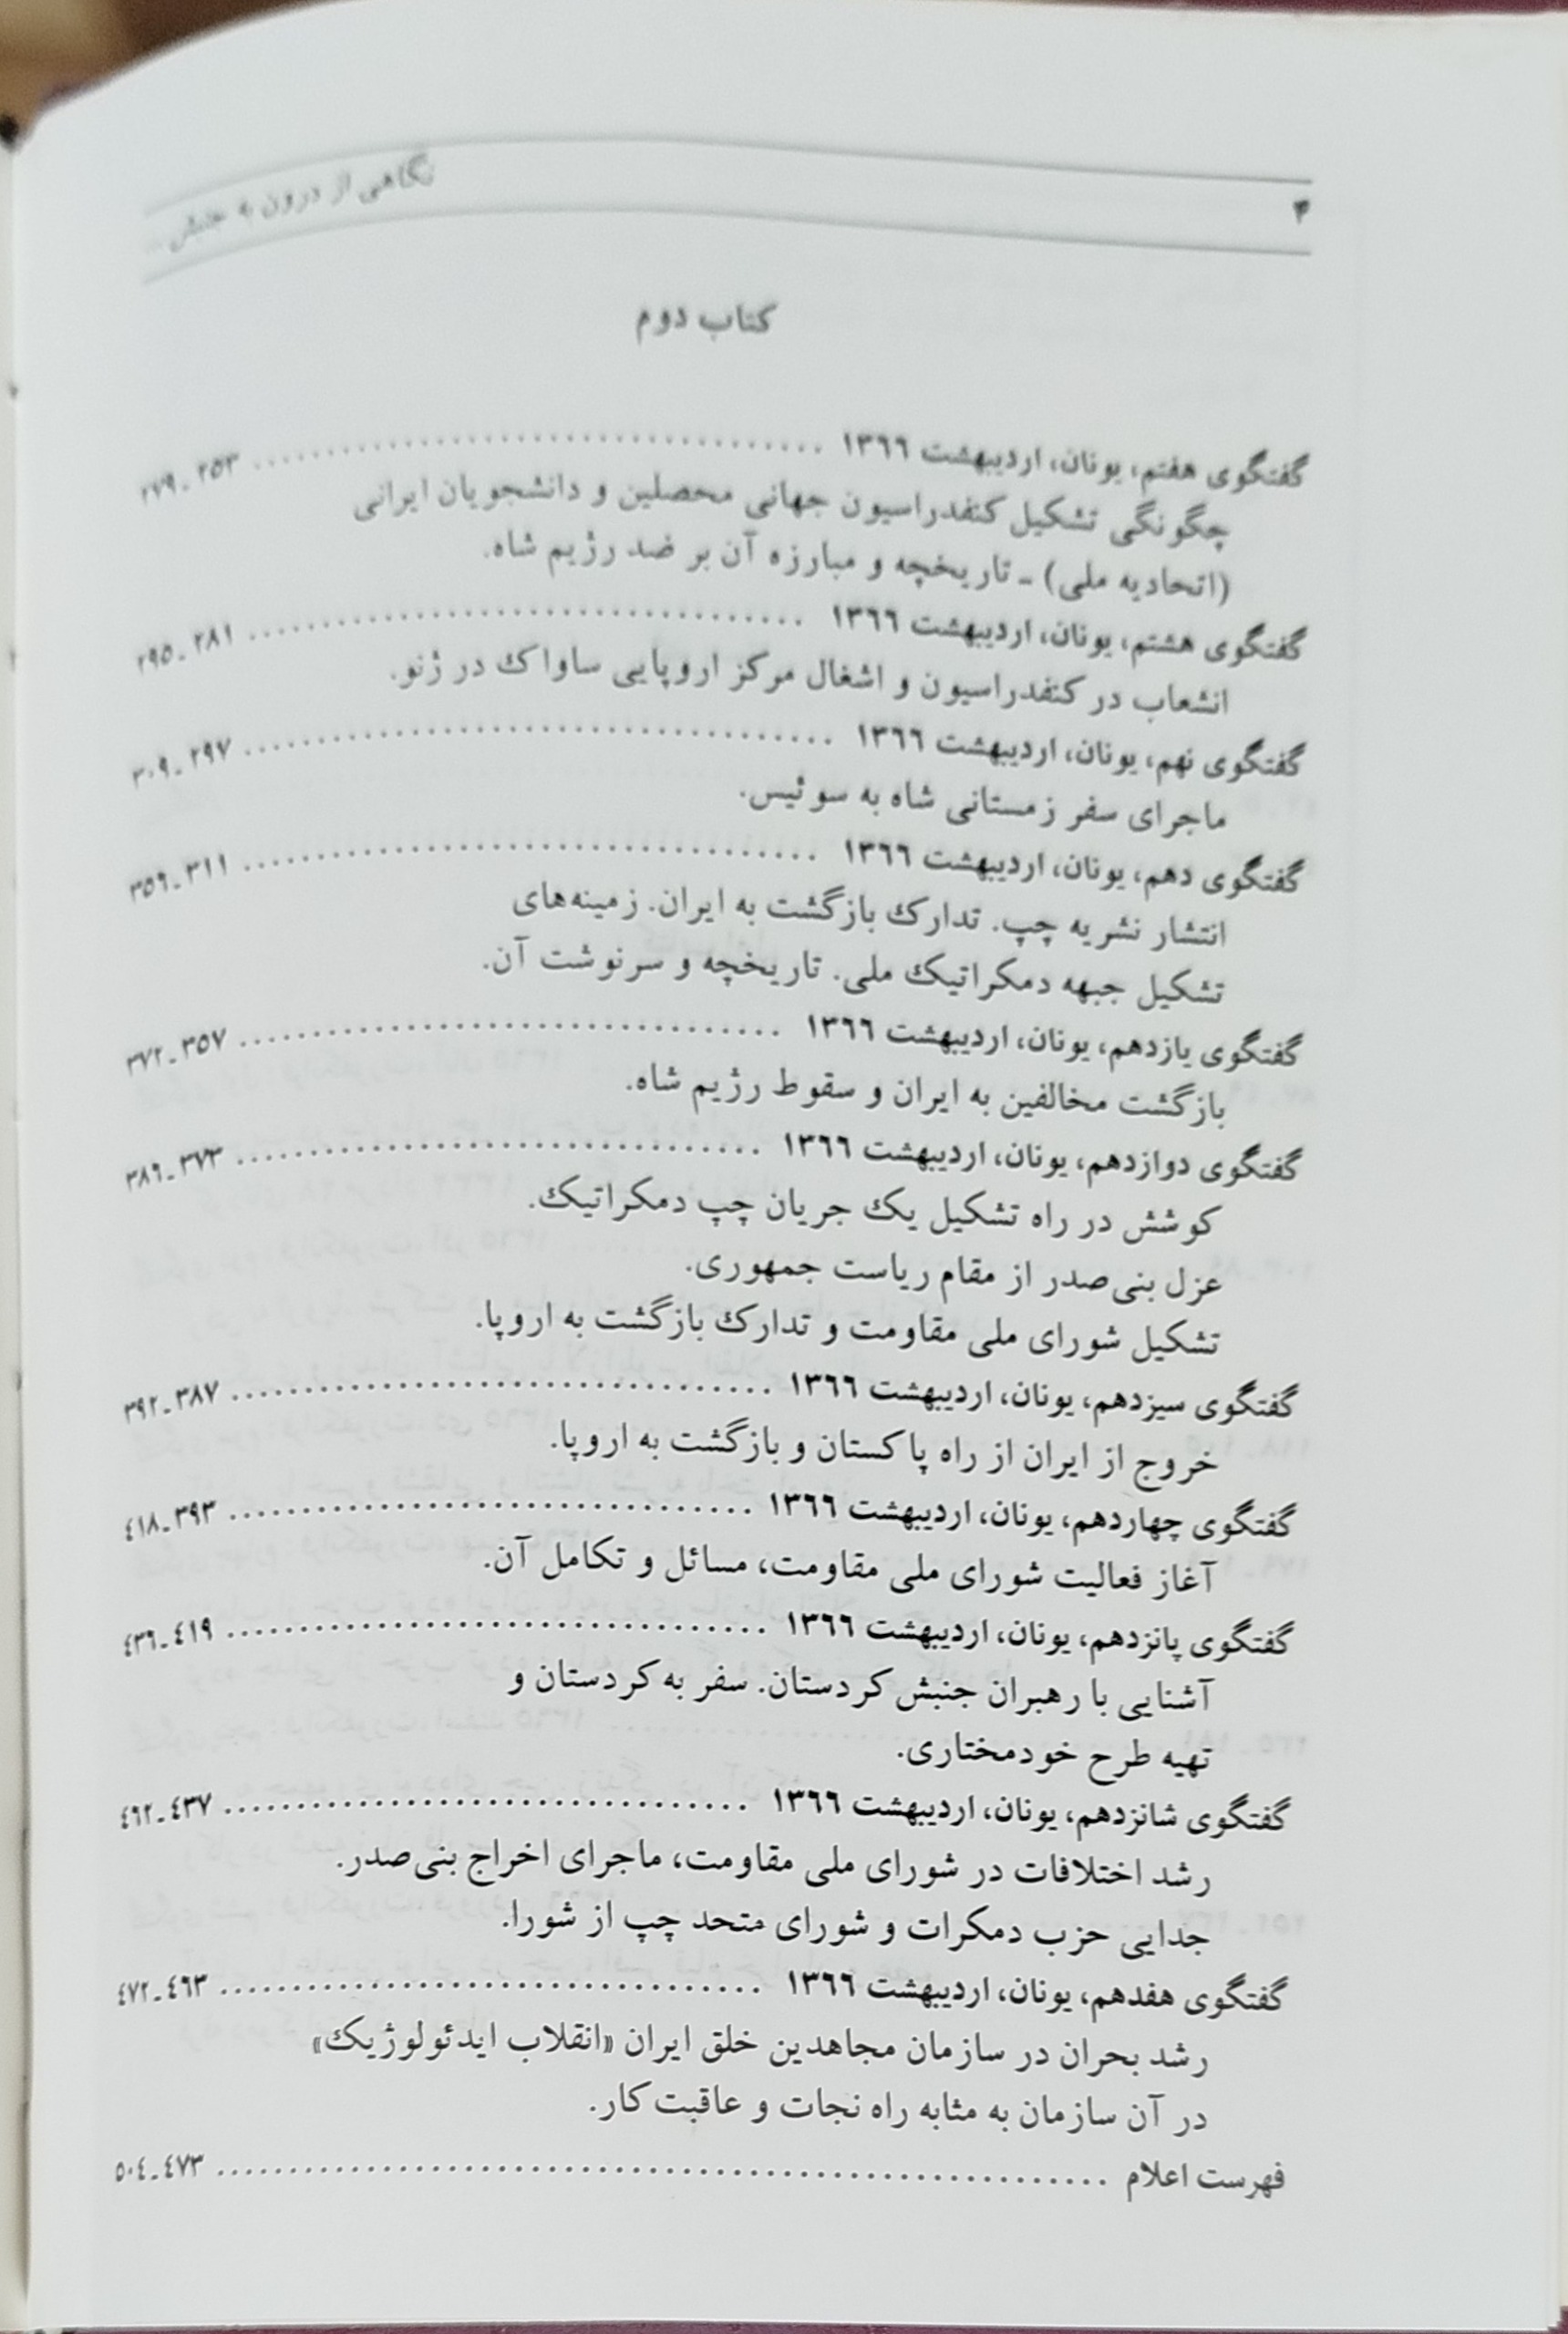 ۴
نگاهی از درون به جنبش ...
کتاب دوم
گفتگوی هفتم، یونان، اردیبهشت ۱۳۶۶ ........ ۲۵۳ـ۲۷۹
چگونگی تشکیل کنفدراسیون جهانی محصلین و دانشجویان ایرانی
(اتحادیه ملی) ـ تاریخچه و مبارزه آن بر ضد رژیم شاه.
گفتگوی هشتم، یونان، اردیبهشت ۱۳۶۶ ........ ۲۸۱ـ۲۹۵
انشعاب در کنفدراسیون و اشغال مرکز اروپایی ساواک در ژنو.
گفتگوی نهم، یونان، اردیبهشت ۱۳۶۶ ........ ۲۹۷ـ۳۰۹
ماجرای سفر زمستانی شاه به سوئیس.
گفتگوی دهم، یونان، اردیبهشت ۱۳۶۶ ........ ۳۱۱ـ۳۵۶
انتشار نشریه چپ. تدارک بازگشت به ایران. زمینه‌های
تشکیل جبهه دمکراتیک ملی. تاریخچه و سرنوشت آن.
گفتگوی یازدهم، یونان، اردیبهشت ۱۳۶۶ ........ ۳۵۷ـ۳۷۲
بازگشت مخالفین به ایران و سقوط رژیم شاه.
گفتگوی دوازدهم، یونان، اردیبهشت ۱۳۶۶ ........ ۳۷۳ـ۳۸۶
کوشش در راه تشکیل یک جریان چپ دمکراتیک.
عزل بنی‌صدر از مقام ریاست جمهوری.
تشکیل شورای ملی مقاومت و تدارک بازگشت به اروپا.
گفتگوی سیزدهم، یونان، اردیبهشت ۱۳۶۶ ........ ۳۸۷ـ۳۹۲
خروج از ایران از راه پاکستان و بازگشت به اروپا.
گفتگوی چهاردهم، یونان، اردیبهشت ۱۳۶۶ ........ ۳۹۳ـ٤۱۸
آغاز فعالیت شورای ملی مقاومت، مسائل و تکامل آن.
گفتگوی پانزدهم، یونان، اردیبهشت ۱۳۶۶ ........ ٤۱۹ـ٤۳۶
آشنایی با رهبران جنبش کردستان. سفر به کردستان و
تهیه طرح خودمختاری.
گفتگوی شانزدهم، یونان، اردیبهشت ۱۳۶۶ ........ ٤۳۷ـ٤۶۲
رشد اختلافات در شورای ملی مقاومت، ماجرای اخراج بنی‌صدر.
جدایی حزب دمکرات و شورای متحد چپ از شورا.
گفتگوی هفدهم، یونان، اردیبهشت ۱۳۶۶ ........ ٤۶۳ـ٤۷۲
رشد بحران در سازمان مجاهدین خلق ایران «انقلاب ایدئولوژیک»
در آن سازمان به مثابه راه نجات و عاقبت کار.
فهرست اعلام ........ ٤۷۳ـ۵۰٤